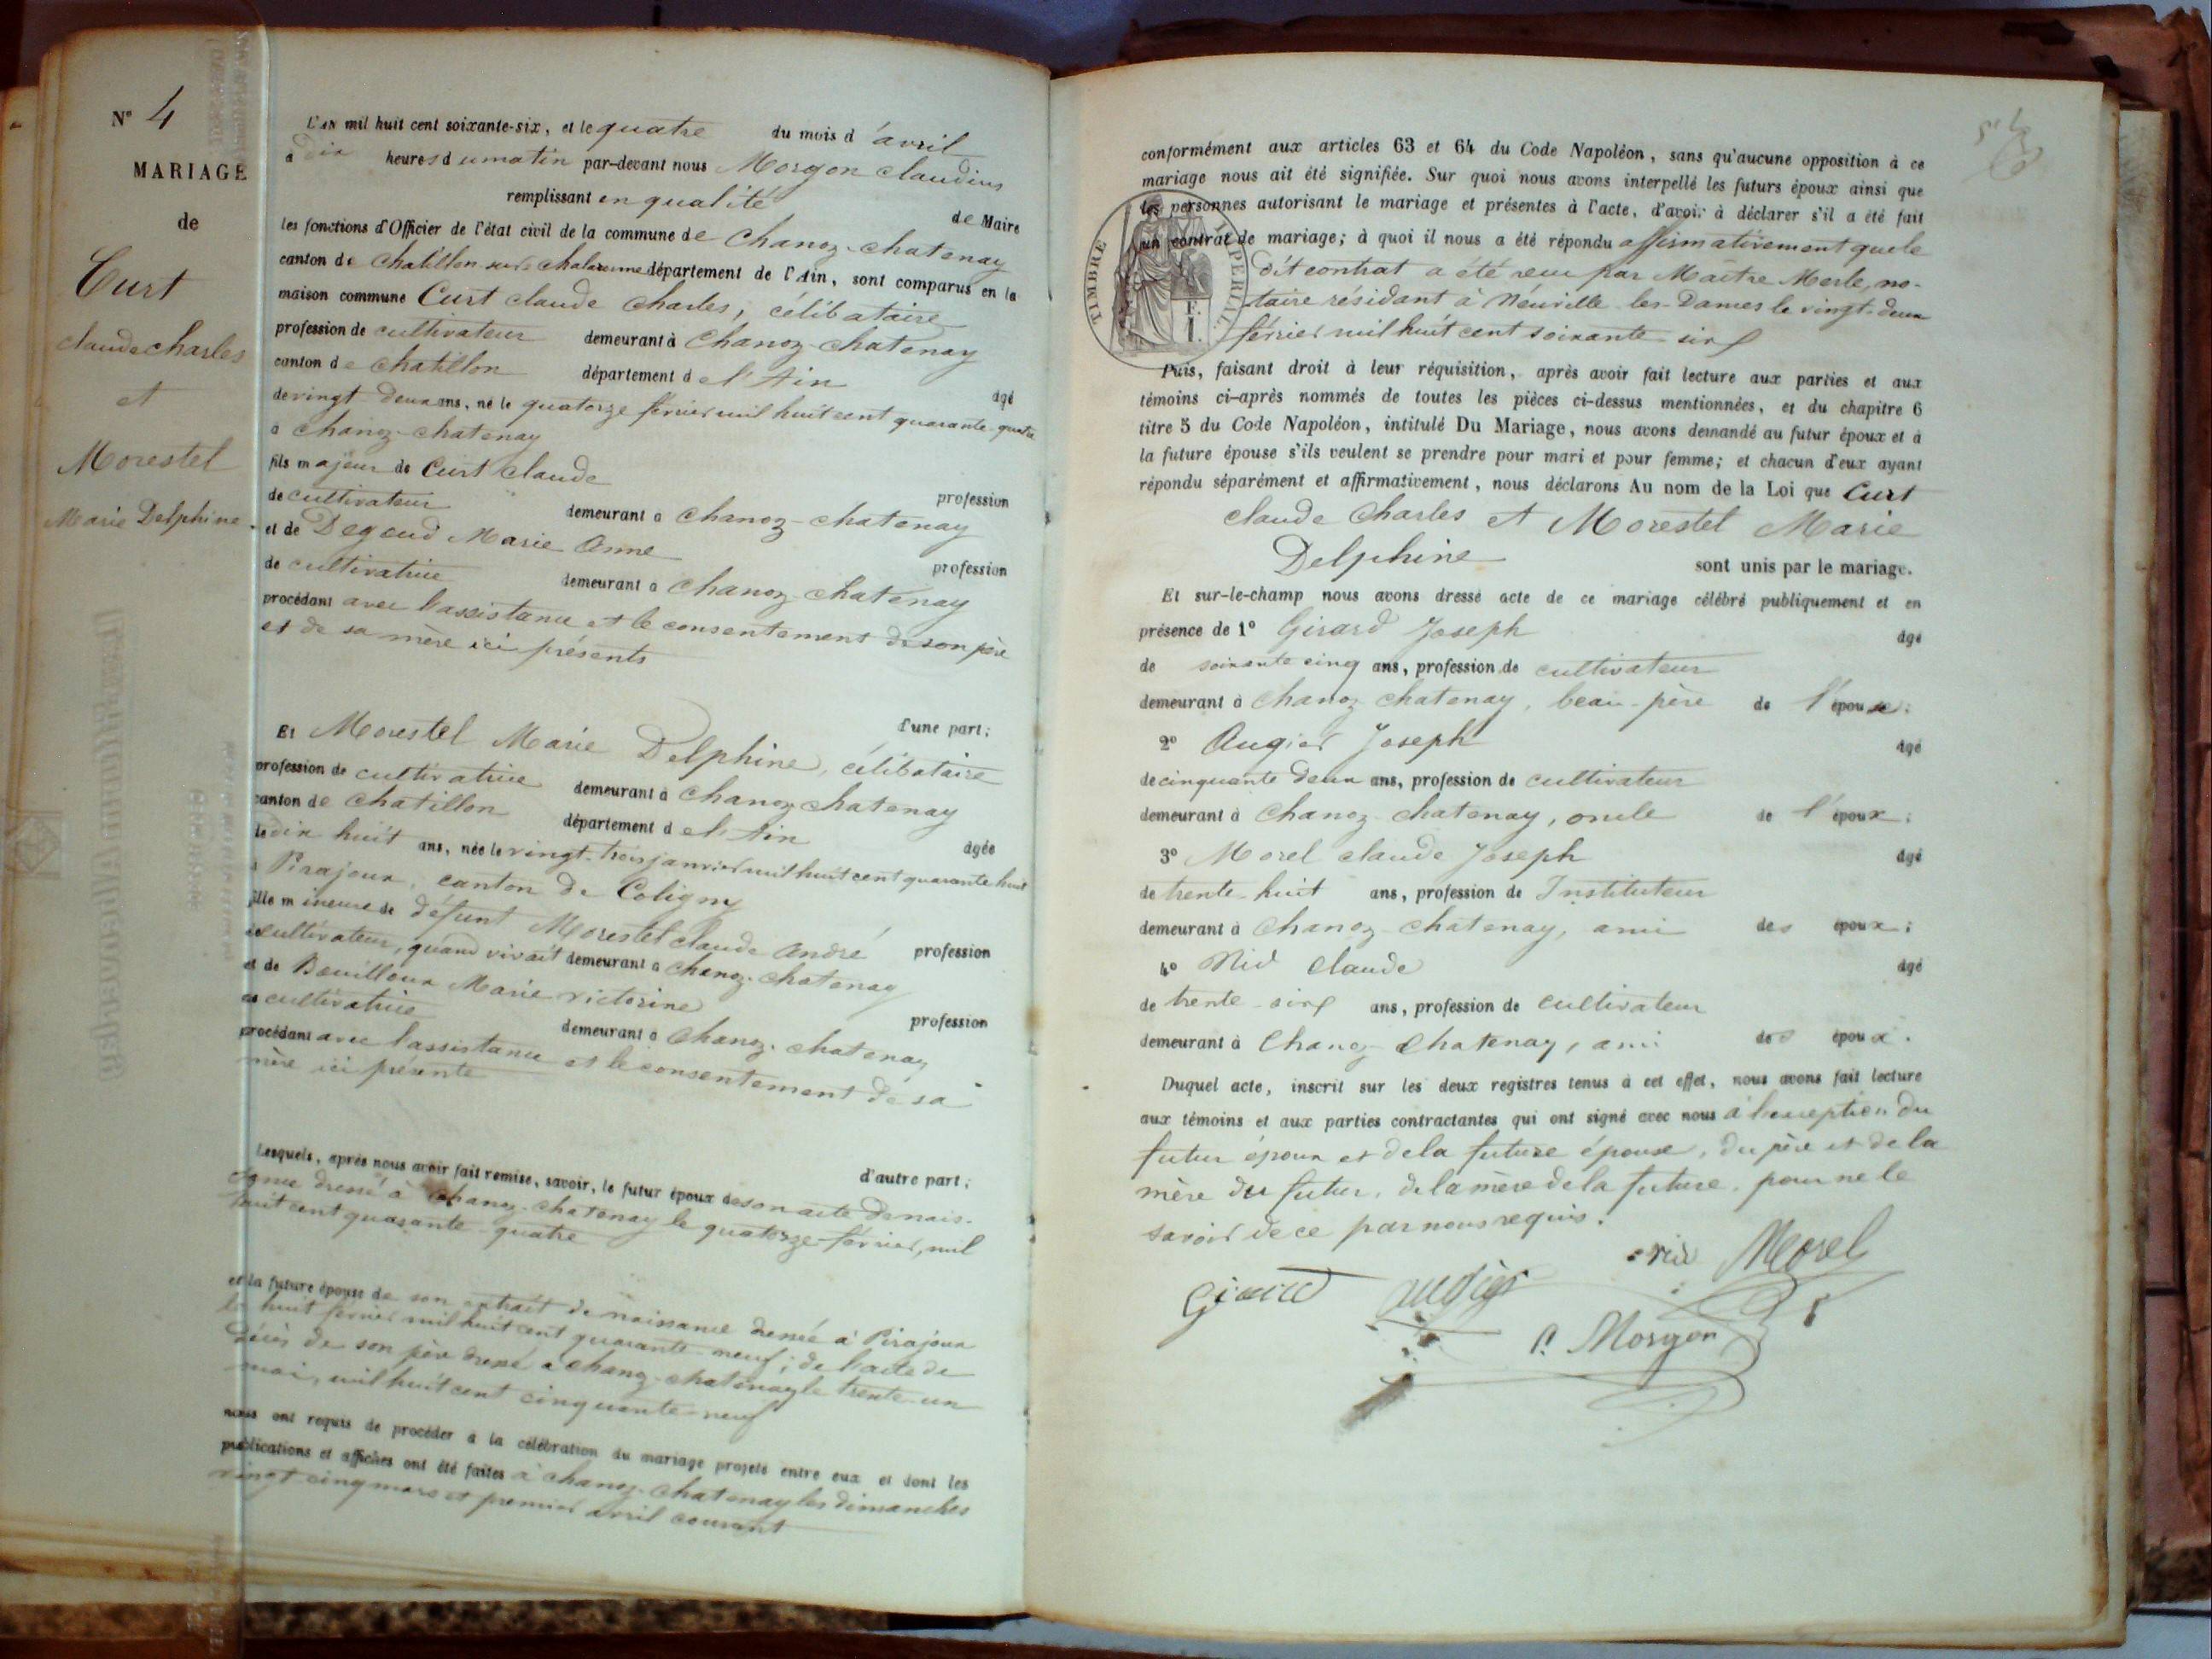 N° 4
MARIAGE
de
Curt
claude charles
et
Morestel
Marie Delphine.
L'AN mil huit cent soixante-six, et le quatre du mois d'avril
à dix heures du matin par-devant nous Morgon Claudius
remplissant en qualité de Maire
les fonctions d'Officier de l'état civil de la commune de Chanoz-chatenay
canton de Chatillon-sur-chalaronne département de l'Ain, sont comparus en la
maison commune Curt claude charles, célibataire
profession de cultivateur demeurant à Chanoz-chatenay
canton de Chatillon département de l'Ain âgé
de vingt deux ans, né le quatorze février mil huit cent quarante-quatre
à Chanoz-chatenay
fils majeur de Curt claude profession
de cultivateur demeurant à Chanoz-chatenay
et de Degoud Marie Anne profession
de cultivatrice demeurant à Chanoz-chatenay
procédant avec l'assistance et le consentement de son père
et de sa mère ici présents
d'une part;
Et Morestel Marie Delphine, célibataire
profession de cultivatrice demeurant à Chanoz chatenay
canton de Chatillon département de l'Ain âgée
de dix huit ans, née le vingt-trois janvier mil huit cent quarante huit
à Pirajoux, canton de Coligny
fille mineure de défunt Morestel claude André profession
de cultivateur, quand vivait demeurant à Chanoz-chatenay
et de Bouilloux Marie victorine profession
de cultivatrice demeurant à Chanoz-chatenay
procédant avec l'assistance et le consentement de sa
mère ici présente
d'autre part;
Lesquels, après nous avoir fait remise, savoir, le futur époux de son acte de nais-
sance dressé à Chanoz-chatenay le quatorze février, mil
huit cent quarante-quatre
et la future épouse de son extrait de naissance dressé à Pirajoux
le huit février mil huit cent quarante-neuf; de l'acte de
décès de son père dressé à Chanoz-chatenay le trente-un
mai, mil huit cent cinquante-neuf
nous ont requis de procéder à la célébration du mariage projeté entre eux et dont les
publications et affiches ont été faites à Chanoz-Chatenay les dimanches
vingt cinq mars et premier avril courant
conformément aux articles 63 et 64 du Code Napoléon, sans qu'aucune opposition à ce
mariage nous ait été signifiée. Sur quoi nous avons interpellé les futurs époux ainsi que
les personnes autorisant le mariage et présentes à l'acte, d'avoir à déclarer s'il a été fait
un contrat de mariage; à quoi il nous a été répondu affirmativement que le
dit contrat a été reçu par Maître Merle, no-
taire résidant à Neuville-les-Dames le vingt-deux
février mil huit cent soixante-six
TIMBRE IMPERIAL
F.
1.
Puis, faisant droit à leur réquisition, après avoir fait lecture aux parties et aux
témoins ci-après nommés de toutes les pièces ci-dessus mentionnées, et du chapitre 6
titre 5 du Code Napoléon, intitulé Du Mariage, nous avons demandé au futur époux et à
la future épouse s'ils veulent se prendre pour mari et pour femme; et chacun d'eux ayant
répondu séparément et affirmativement, nous déclarons Au nom de la Loi que Curt
claude Charles et Morestel Marie
Delphine sont unis par le mariage.
Et sur-le-champ nous avons dressé acte de ce mariage célébré publiquement et en
présence de 1° Girard Joseph âgé
de soixante cinq ans, profession de cultivateur
demeurant à Chanoz chatenay, beau-père de l'épouse;
2° Augier Joseph âgé
de cinquante deux ans, profession de cultivateur
demeurant à Chanoz-chatenay, oncle de l'époux;
3° Morel claude Joseph âgé
de trente-huit ans, profession de Instituteur
demeurant à Chanoz-chatenay, ami des époux;
4° Nid Claude âgé
de trente-six ans, profession de cultivateur
demeurant à Chanoz-Chatenay, ami des époux.
Duquel acte, inscrit sur les deux registres tenus à cet effet, nous avons fait lecture
aux témoins et aux parties contractantes qui ont signé avec nous à l'exception du
futur époux et de la future épouse, du père et de la
mère du futur, de la mère de la future, pour ne le
savoir de ce par nous requis.
Girard augier nid Morel
C. Morgon